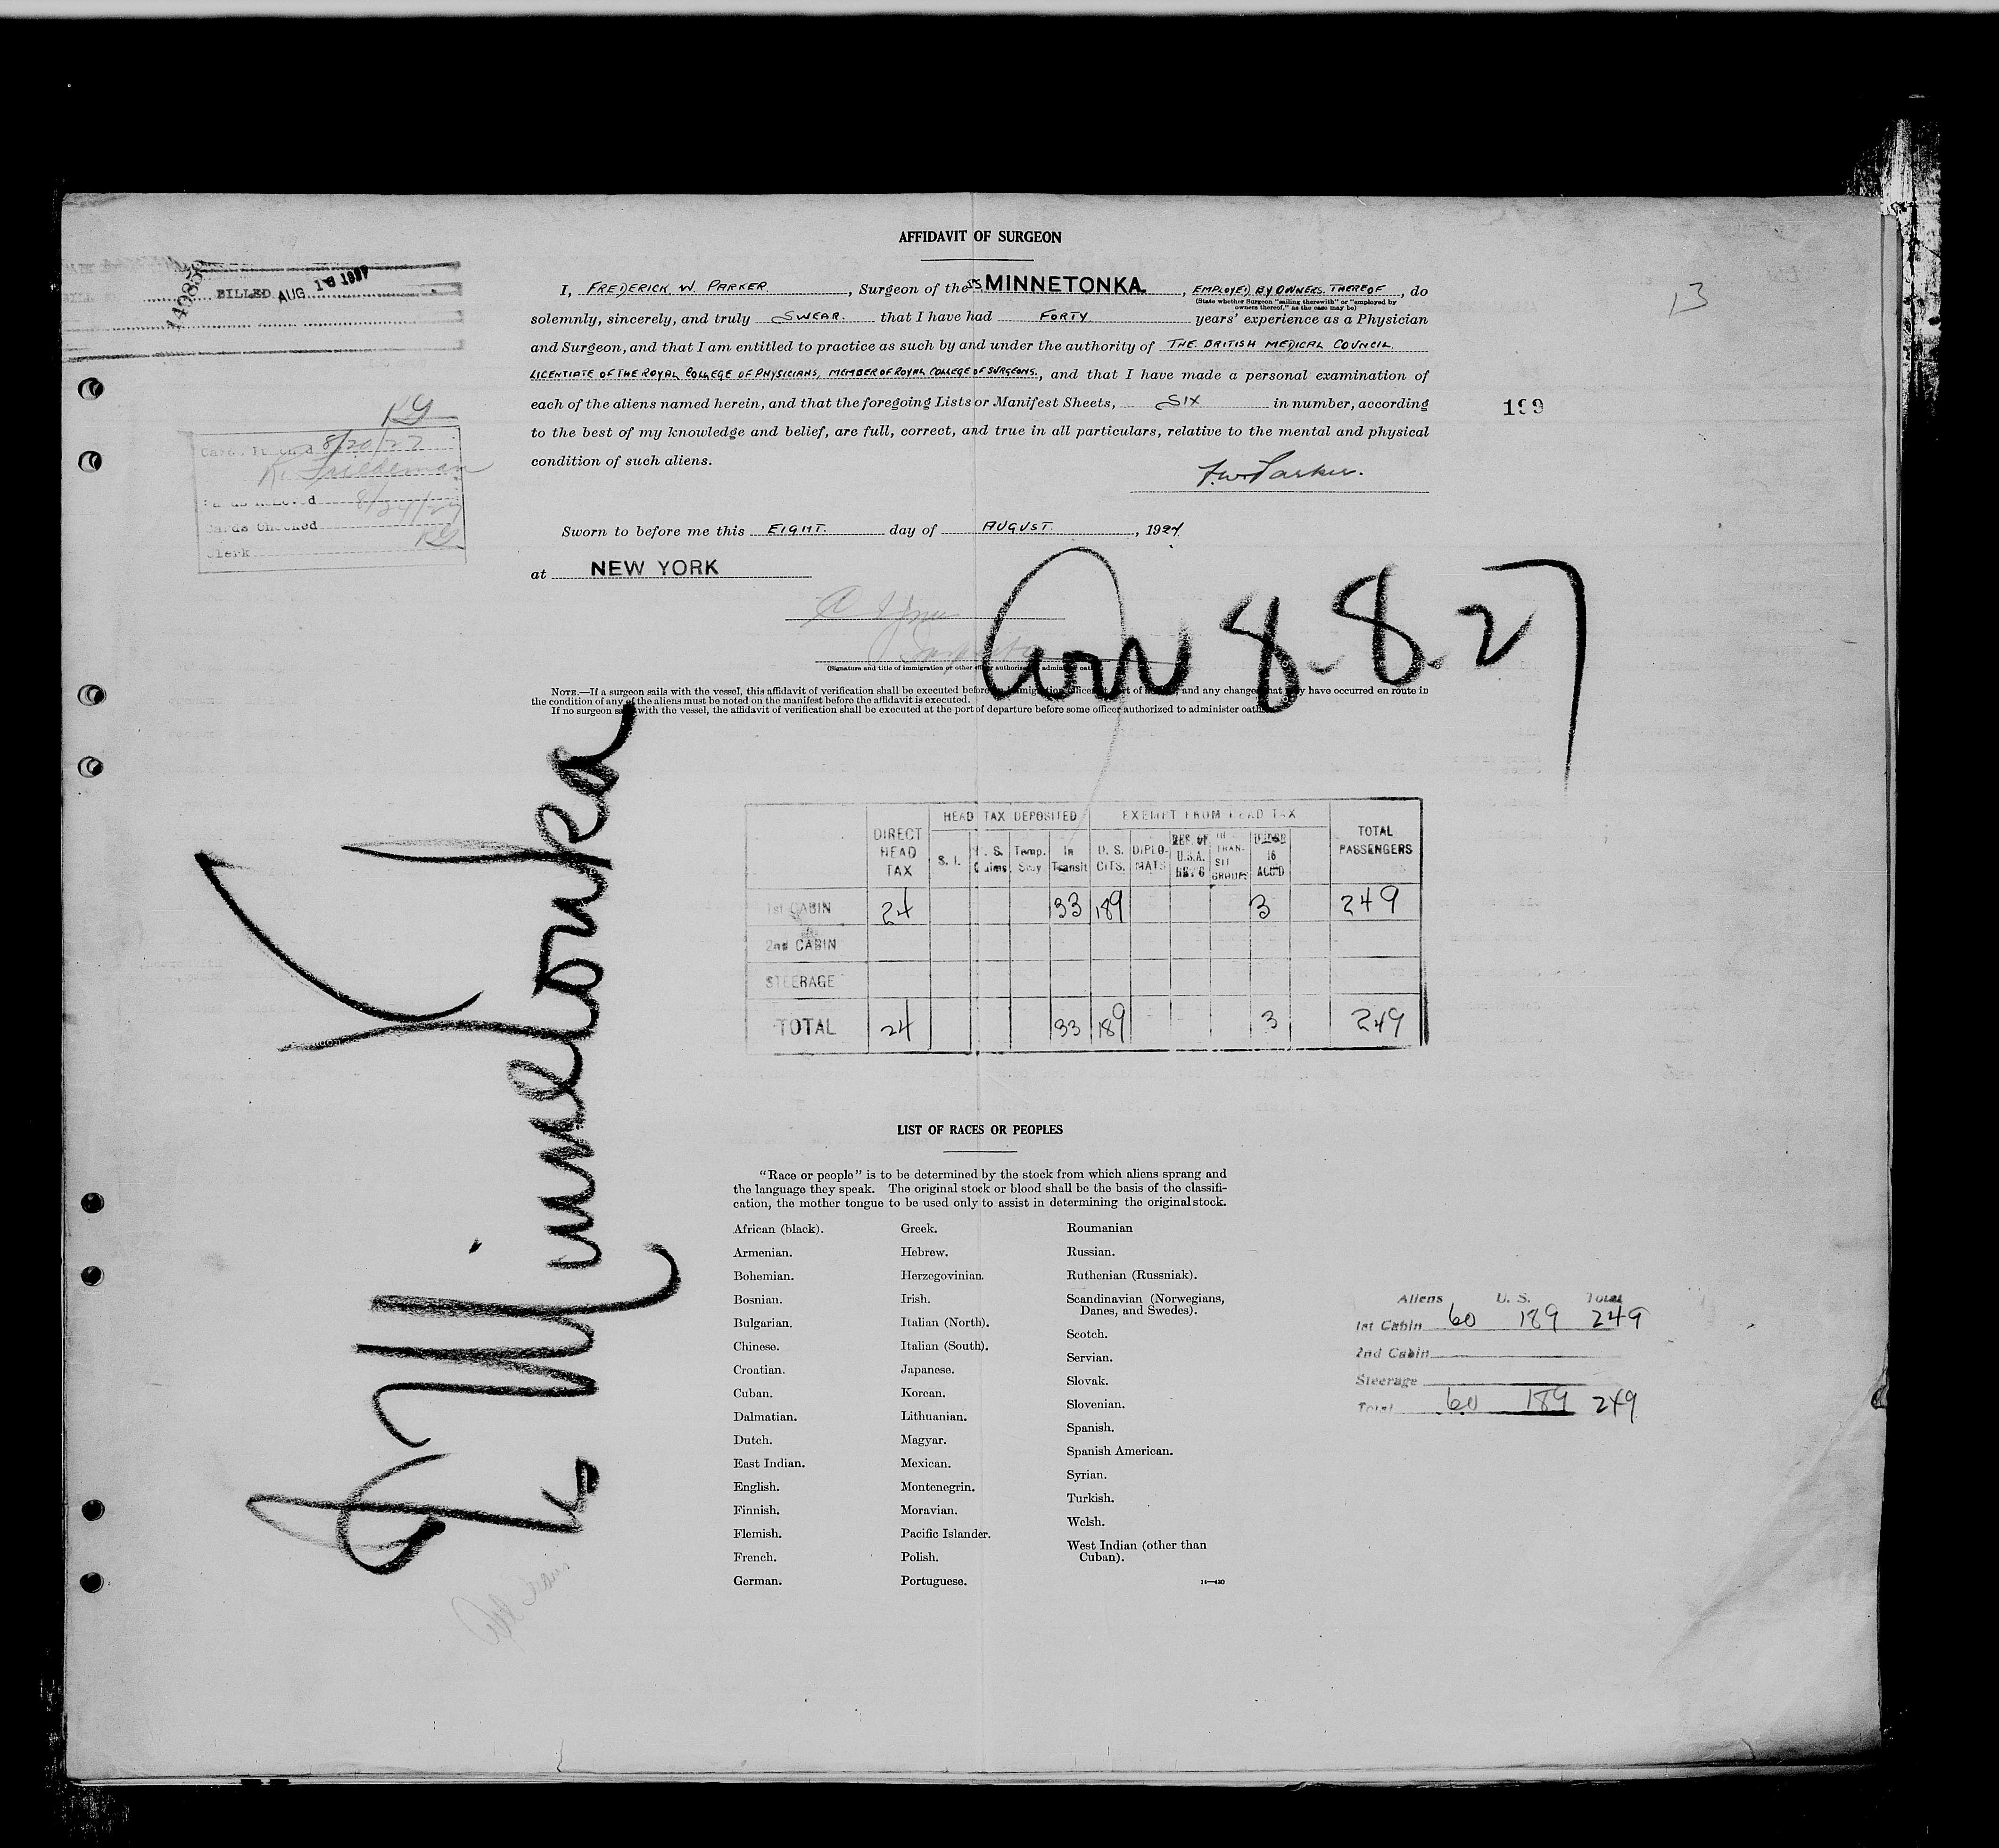 AFFIDAVIT OF SURGEON
149850
BILLED AUG 18 1927
13
I, FREDERICK W. PARKER, Surgeon of the SS MINNETONKA, EMPLOYED BY OWNERS THEREOF, do
(State whether Surgeon "sailing therewith" or "employed by
owners thereof," as the case may be)
solemnly, sincerely, and truly SWEAR. that I have had FORTY years' experience as a Physician
and Surgeon, and that I am entitled to practice as such by and under the authority of THE BRITISH MEDICAL COUNCIL.
LICENTIATE OF THE ROYAL COLLEGE OF PHYSICIANS, MEMBER OF ROYAL COLLEGE OF SURGEONS., and that I have made a personal examination of
each of the aliens named herein, and that the foregoing Lists or Manifest Sheets, SIX in number, according
199
to the best of my knowledge and belief, are full, correct, and true in all particulars, relative to the mental and physical
condition of such aliens.
F.W. Parker.
KG
8/20/27
K. Friedeman
8/24/27
Cards Checked
Clerk KG
Sworn to before me this EIGHT. day of AUGUST., 1927
at NEW YORK
Arr 8-8-27
(Signature and title of immigration or other officer authorized to administer oaths)
NOTE.—If a surgeon sails with the vessel, this affidavit of verification shall be executed before immigration officer port of and any changes that may have occurred en route in
the condition of any of the aliens must be noted on the manifest before the affidavit is executed.
If no surgeon sails with the vessel, the affidavit of verification shall be executed at the port of departure before some officer authorized to administer oaths.
Minnetonka
DIRECT HEAD TAX
HEAD TAX DEPOSITED
EXEMPT FROM HEAD TAX
TOTAL PASSENGERS
S. I. U. S. Claims Temp. Stay In Transit U. S. CITS. DIPLOMATS RES. OF U.S.A. TRANSIT GROUPS UNDER 16 ACC'D
1st CABIN 24 33 189 3 249
2nd CABIN
STEERAGE
TOTAL 24 33 189 3 249
LIST OF RACES OR PEOPLES
"Race or people" is to be determined by the stock from which aliens sprang and
the language they speak. The original stock or blood shall be the basis of the classifi-
cation, the mother tongue to be used only to assist in determining the original stock.
African (black).
Armenian.
Bohemian.
Bosnian.
Bulgarian.
Chinese.
Croatian.
Cuban.
Dalmatian.
Dutch.
East Indian.
English.
Finnish.
Flemish.
French.
German.
Greek.
Hebrew.
Herzegovinian.
Irish.
Italian (North).
Italian (South).
Japanese.
Korean.
Lithuanian.
Magyar.
Mexican.
Montenegrin.
Moravian.
Pacific Islander.
Polish.
Portuguese.
Roumanian
Russian.
Ruthenian (Russniak).
Scandinavian (Norwegians,
Danes, and Swedes).
Scotch.
Servian.
Slovak.
Slovenian.
Spanish.
Spanish American.
Syrian.
Turkish.
Welsh.
West Indian (other than
Cuban).
14—430
Aliens U. S. Total
1st Cabin 60 189 249
2nd Cabin
Steerage
Total 60 189 249